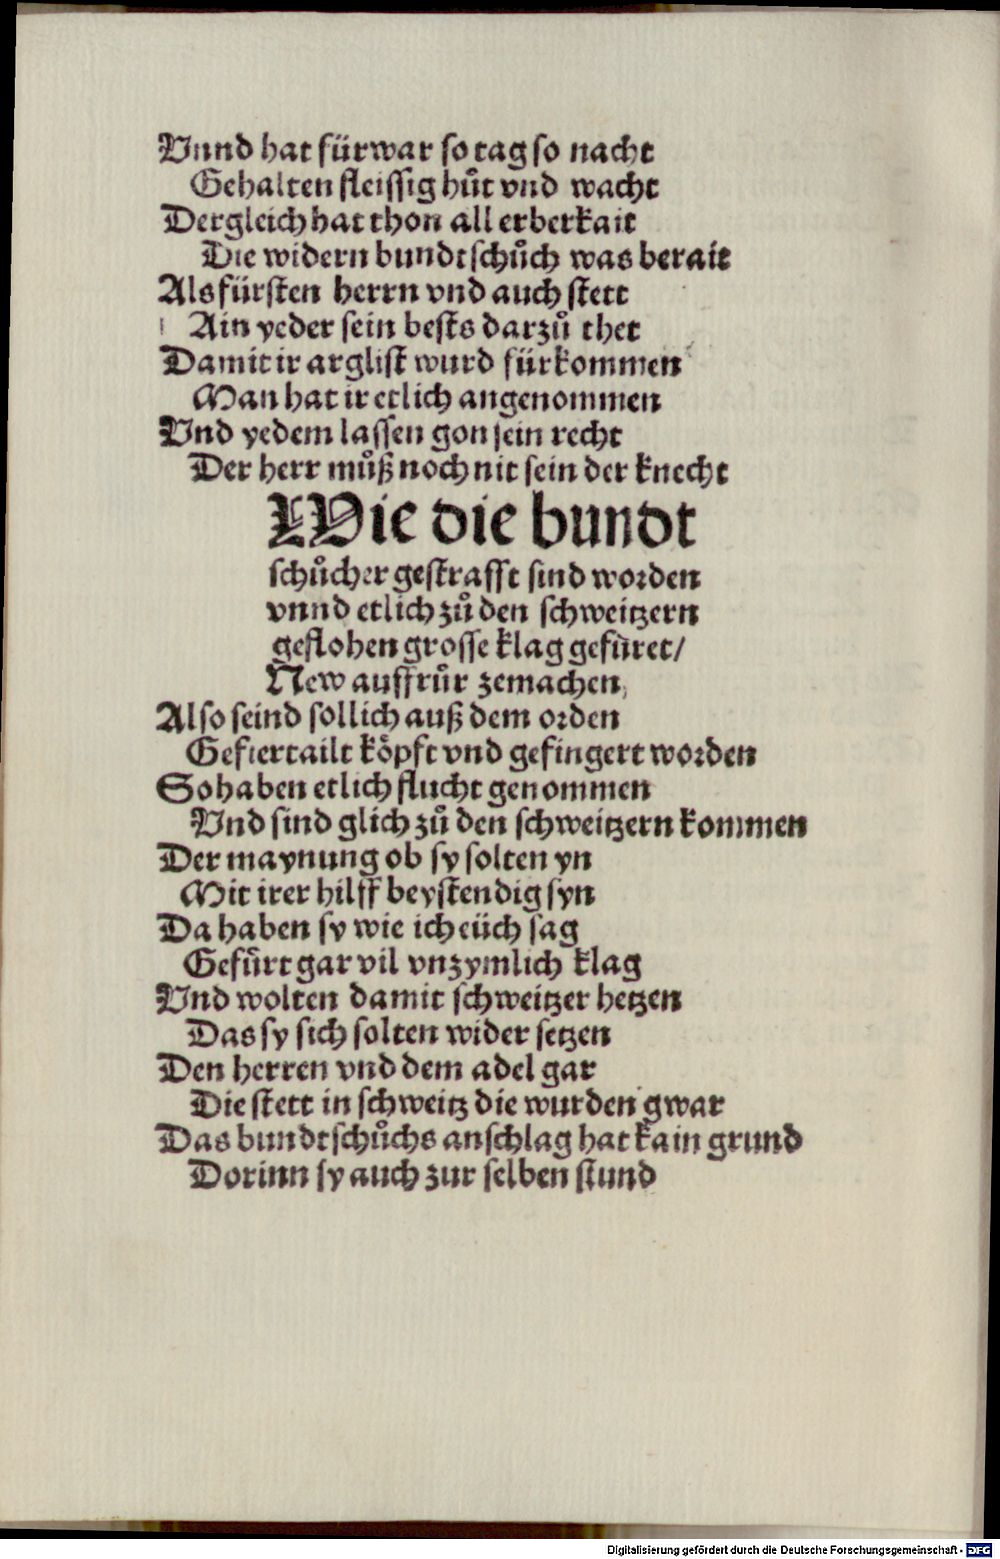 Vnnd hat fürwar so tag so nacht
Gehalten fleissig hůt vnd wacht
Dergleich hat thon all erberkait
Die widern bundtschůch was berait
Als fürsten herrn vnd auch stett
Ain yeder sein bests darzů thet
Damit ir arglist wurd fürkommen
Man hat ir etlich angenommen
Vnd yedem lassen gon sein recht
Der herr můß noch nit sein der knecht
Wie die bundt
schůcher gestrafft sind worden
vnnd etlich zů den schweitzern
geflohen grosse klag gefüret/
New auffrůr zemachen,
Also seind sollich auß dem orden
Gefiertailt köpft vnd gefingert worden
So haben etlich flucht genommen
Vnd sind glich zů den schweitzern kommen
Der maynung ob sy solten yn
Mit irer hilff beystendig syn
Da haben sy wie ich eüch sag
Gefürt gar vil vnzymlich klag
Vnd wolten damit schweitzer hetzen
Das sy sich solten wider setzen
Den herren vnd dem adel gar
Die stett in schweitz die wurden gwar
Das bundtschůchs anschlag hat kain grund
Dorinn sy auch zur selben stund
Digitalisierung gefördert durch die Deutsche Forschungsgemeinschaft - DFG